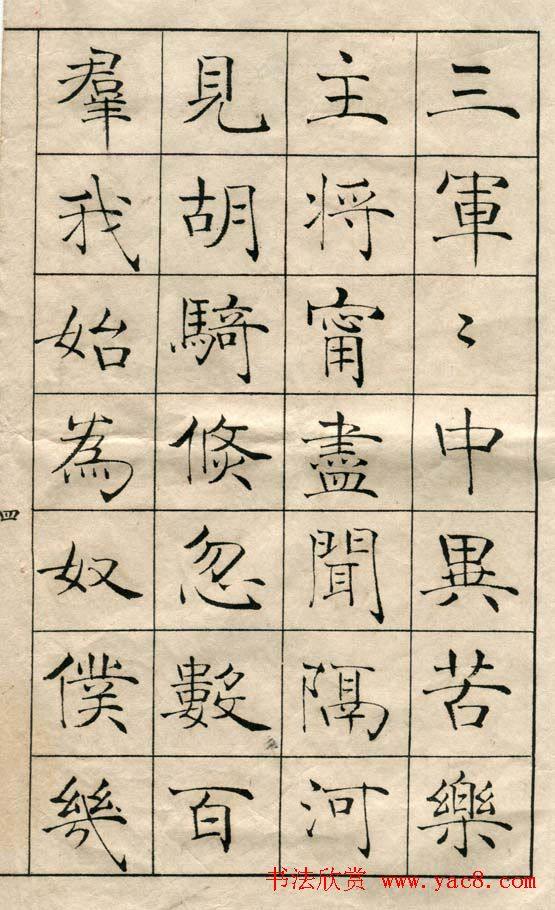 三軍〻中異苦樂
主將甯盡聞隔河
見胡騎倐忽數百
羣我始為奴僕幾
四
书法欣赏 www.yac8.com